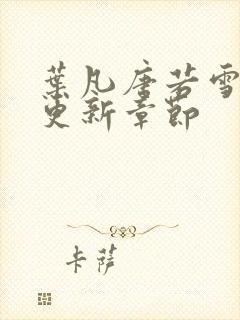 葉凡唐若雪
更新章節
卡薩